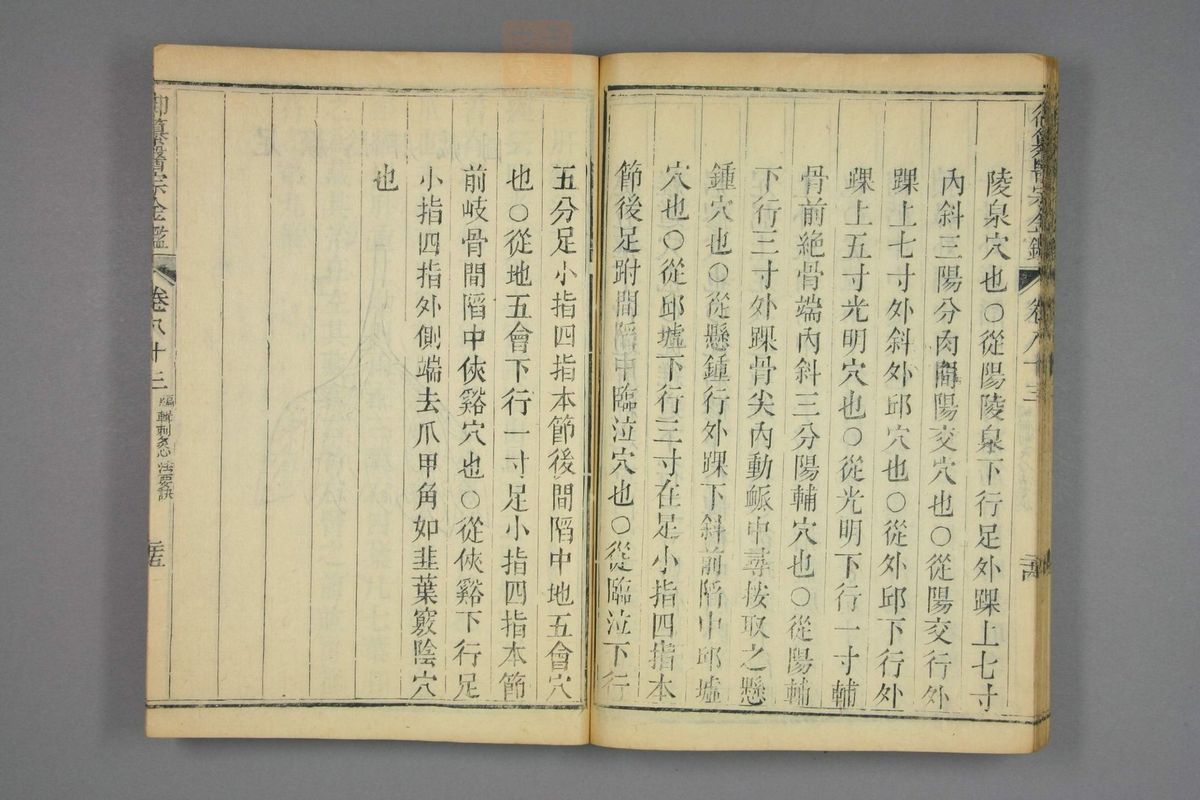 御纂醫宗金鑑 卷八十三
陵泉穴也○從陽陵泉下行足外踝上七寸
內斜三陽分肉間陽交穴也○從陽交行外
踝上七寸外斜外邱穴也○從外邱下行外
踝上五寸光明穴也○從光明下行一寸輔
骨前絕骨端內斜三分陽輔穴也○從陽輔
下行三寸外踝骨尖內動䘑中尋按取之懸
鍾穴也○從懸鍾行外踝下斜前䧟中邱墟
穴也○從邱墟下行三寸在足小指四指本
節後足跗間䧟中臨泣穴也○從臨泣下行
五分足小指四指本節後間䧟中地五會穴
也○從地五會下行一寸足小指四指本節
前岐骨間䧟中俠谿穴也○從俠谿下行足
小指四指外側端去爪甲角如韭葉竅陰穴
也
御纂醫宗金鑑 卷八十三 編輯刺灸心法要訣 二十五